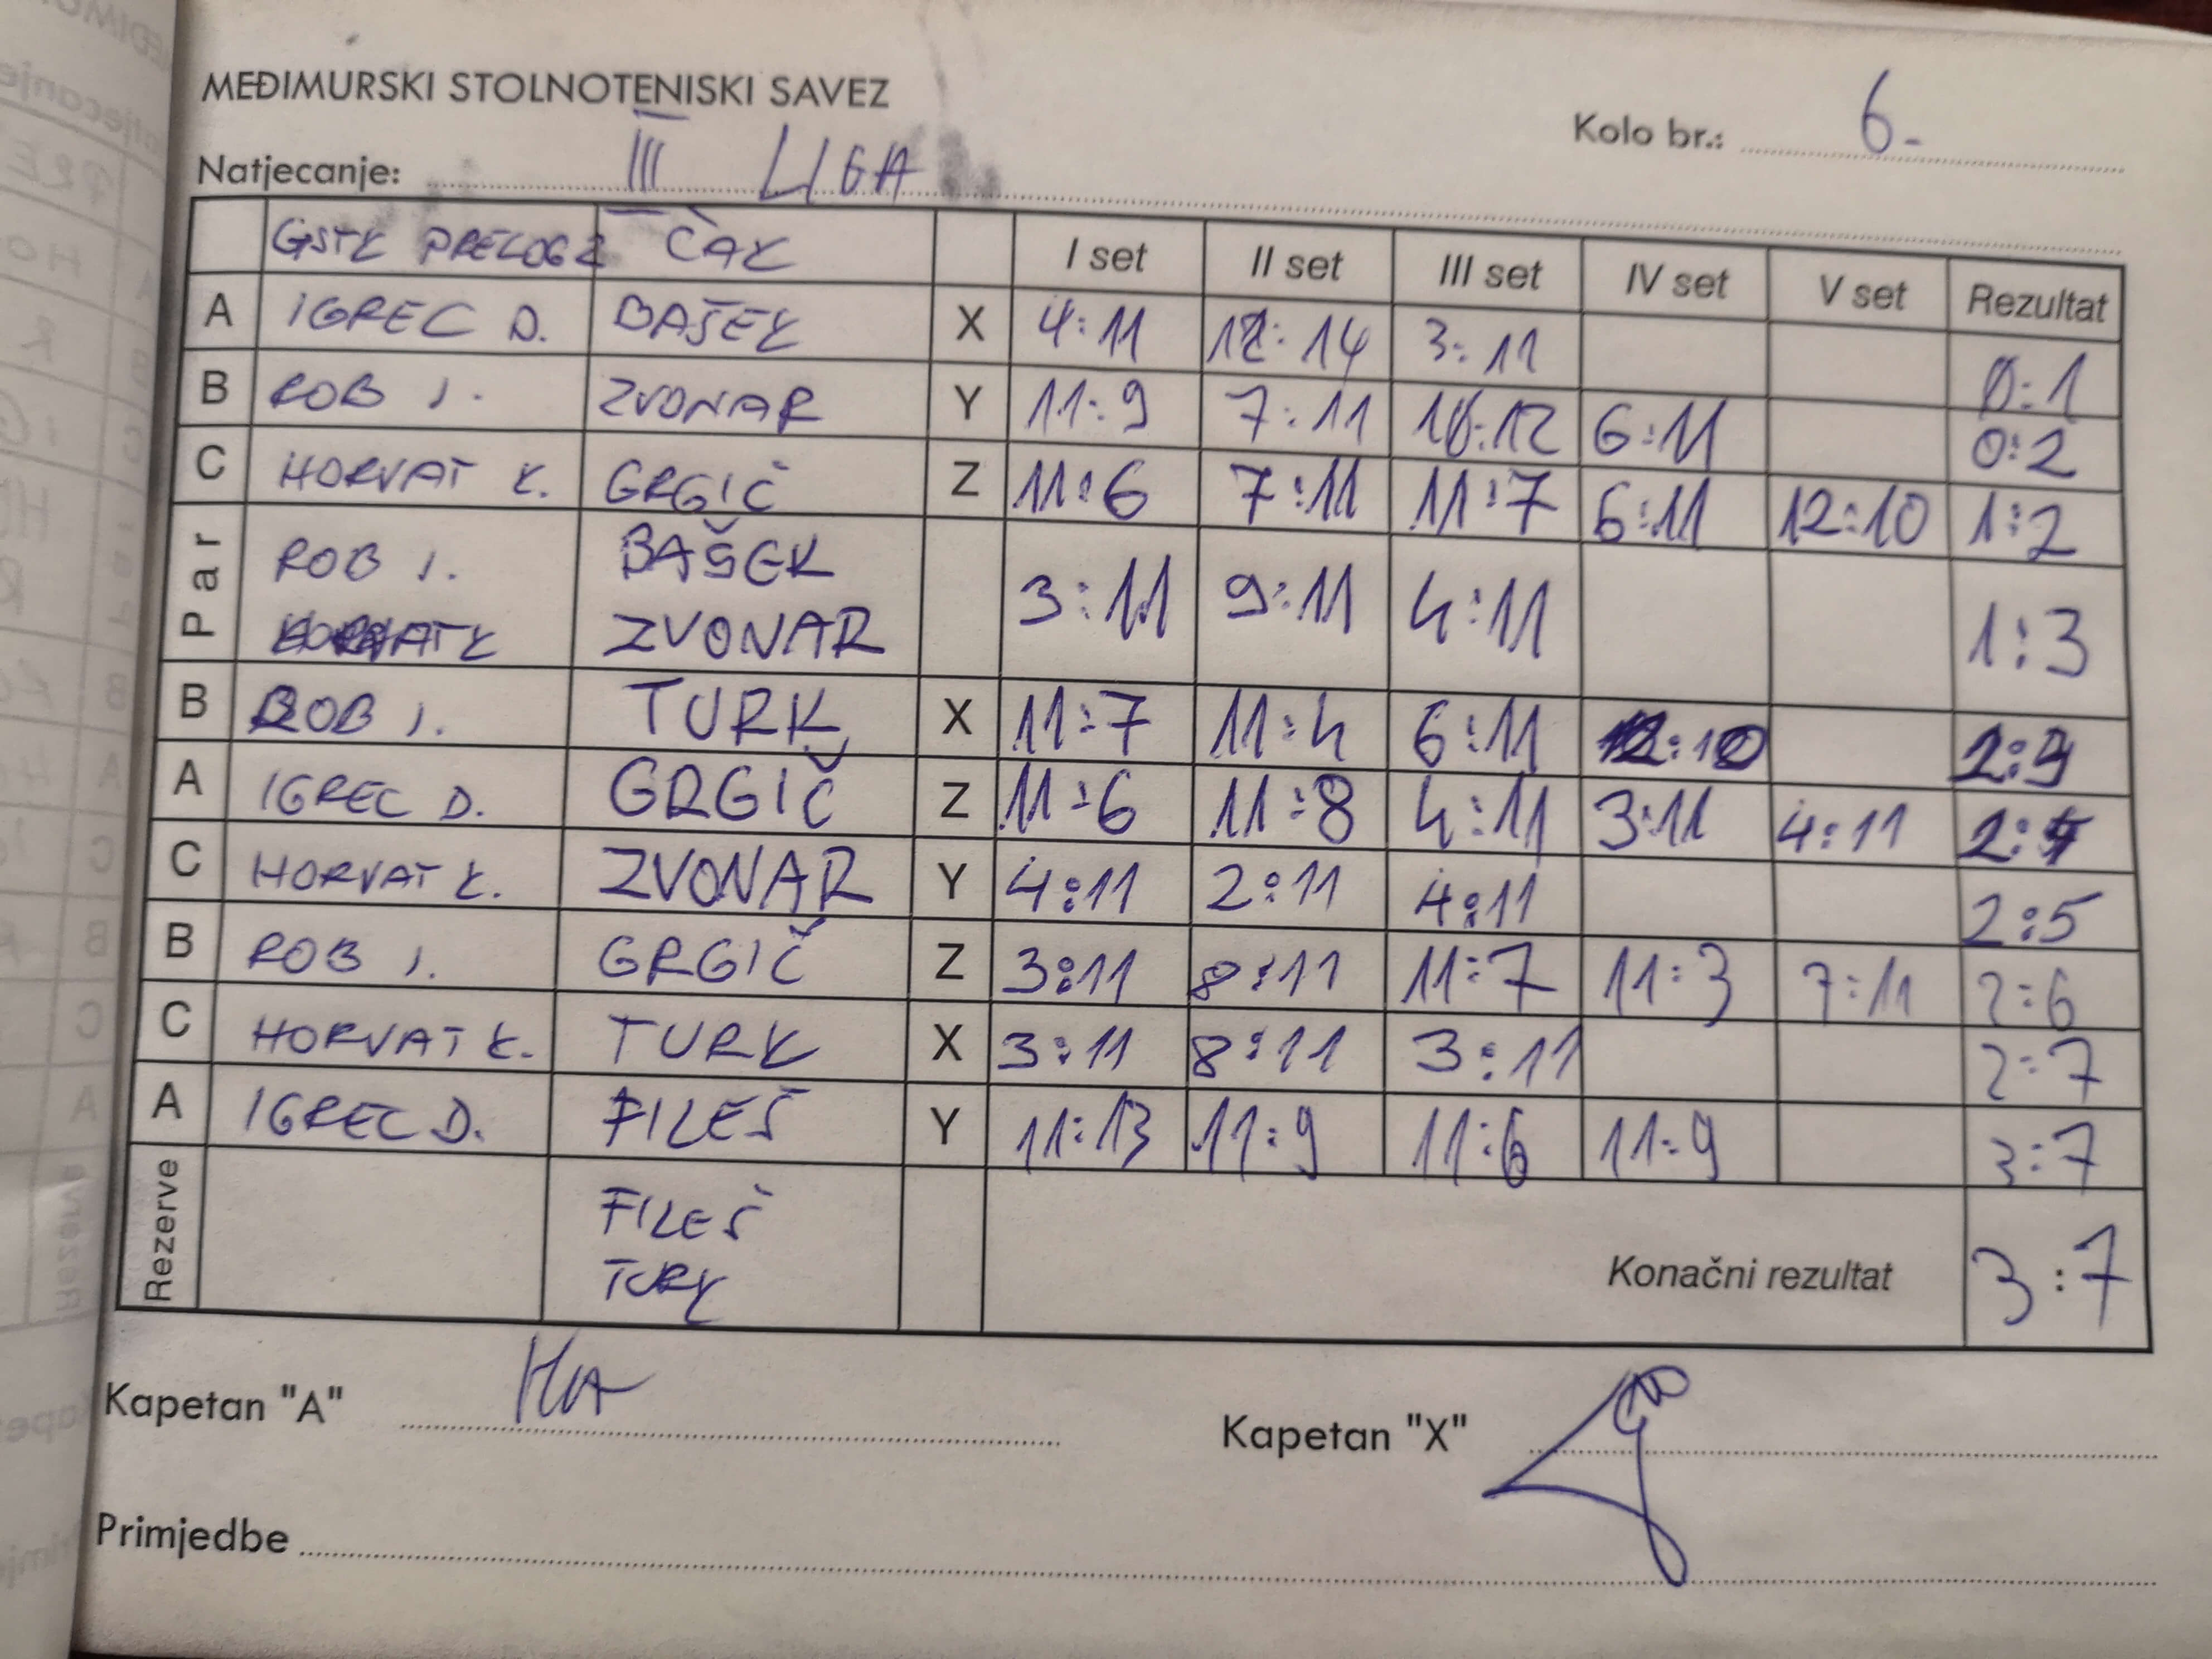 MEĐIMURSKI STOLNOTENISKI SAVEZ
Kolo br.: 6.
Natjecanje: III LIGA
GSTK PRELOG 2 ČAK I set II set III set IV set V set Rezultat
A IGREC D. BAŠEK X 4:11 12:14 3:11 0:1
B ROB I. ZVONAR Y 11:9 7:11 10:12 6:11 0:2
C HORVAT K. GRGIČ Z 11:6 7:11 11:7 6:11 12:10 1:2
Par ROB I. BAŠEK 3:11 9:11 4:11 1:3
HORVAT K ZVONAR
B ROB I. TURK X 11:7 11:4 6:11 12:10 2:3
A IGREC D. GRGIČ Z 11:6 11:8 4:11 3:11 4:11 2:4
C HORVAT K. ZVONAR Y 4:11 2:11 4:11 2:5
B ROB I. GRGIČ Z 3:11 8:11 11:7 11:3 7:11 2:6
C HORVAT K. TURK X 3:11 8:11 3:11 2:7
A IGREC D. FILEŠ Y 11:13 11:9 11:6 11:9 3:7
Rezerve FILEŠ
TURK
Konačni rezultat 3:7
Kapetan "A" Kapetan "X"
Primjedbe